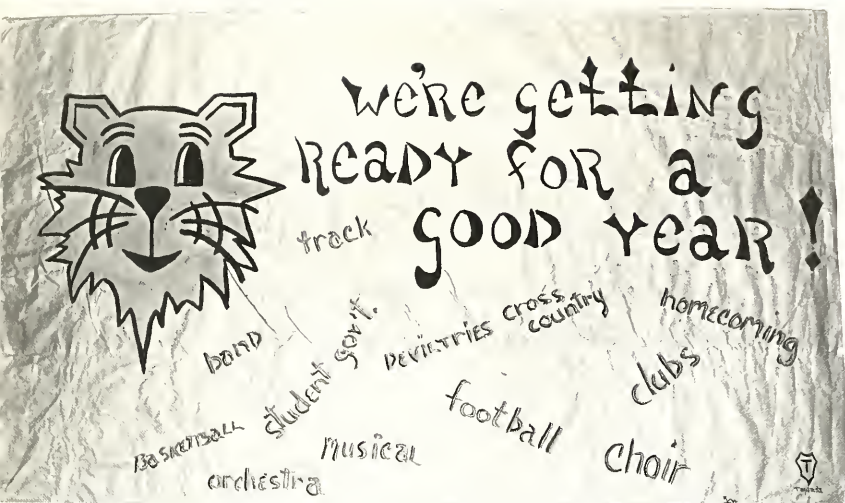 we're getting
Ready for a
good year!
track
band
student gov't.
Deviltries
cross
country
homecoming
clubs
football
Basketball
musical
orchestra
choir
T